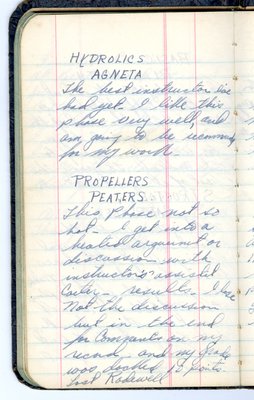 HYDROLICS
AGNETA
The best instructor I've
had yet. I like this
phase very well, and
am going to be recommend
for my work.
PROPELLERS
PEATERS
This phase not so
hot - I get into a
heated argument or
discussion with
instructor's assist
Carter - results I lose
Not the discussion
but in the end
for Comments on my
record, and my grade
was docked 18 points.